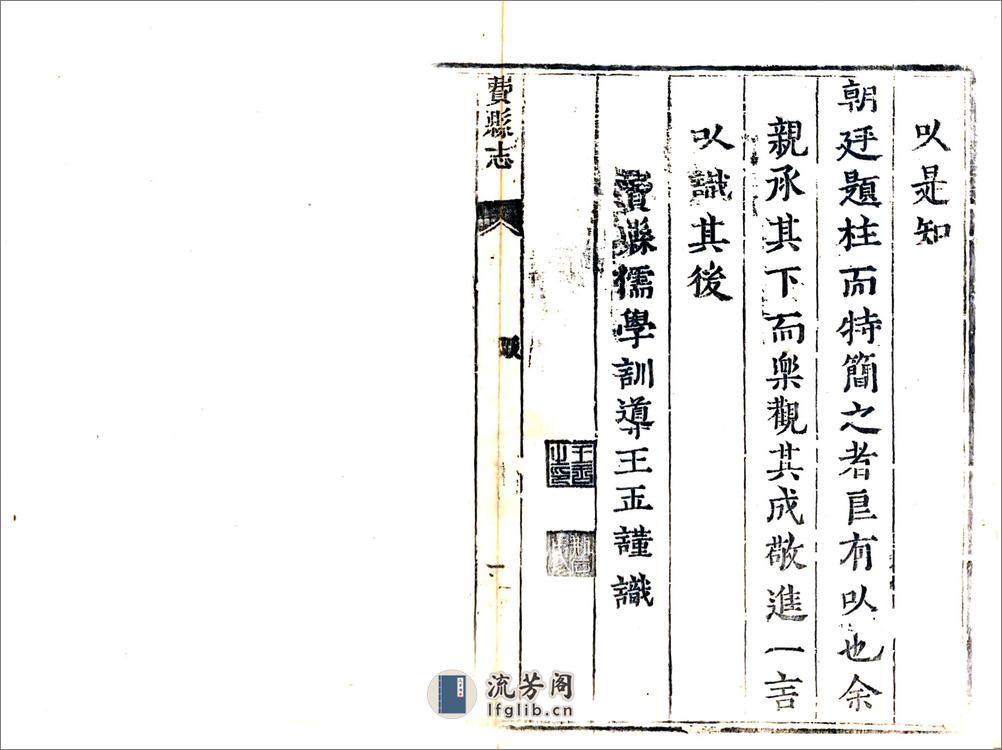 以是知
朝廷題柱而特簡之者良有以也余
親承其下而樂觀其成敬進一言
以識其後
費縣儒學訓導王玉謹識
費縣志
跋
一
流芳阁
lfglib.cn